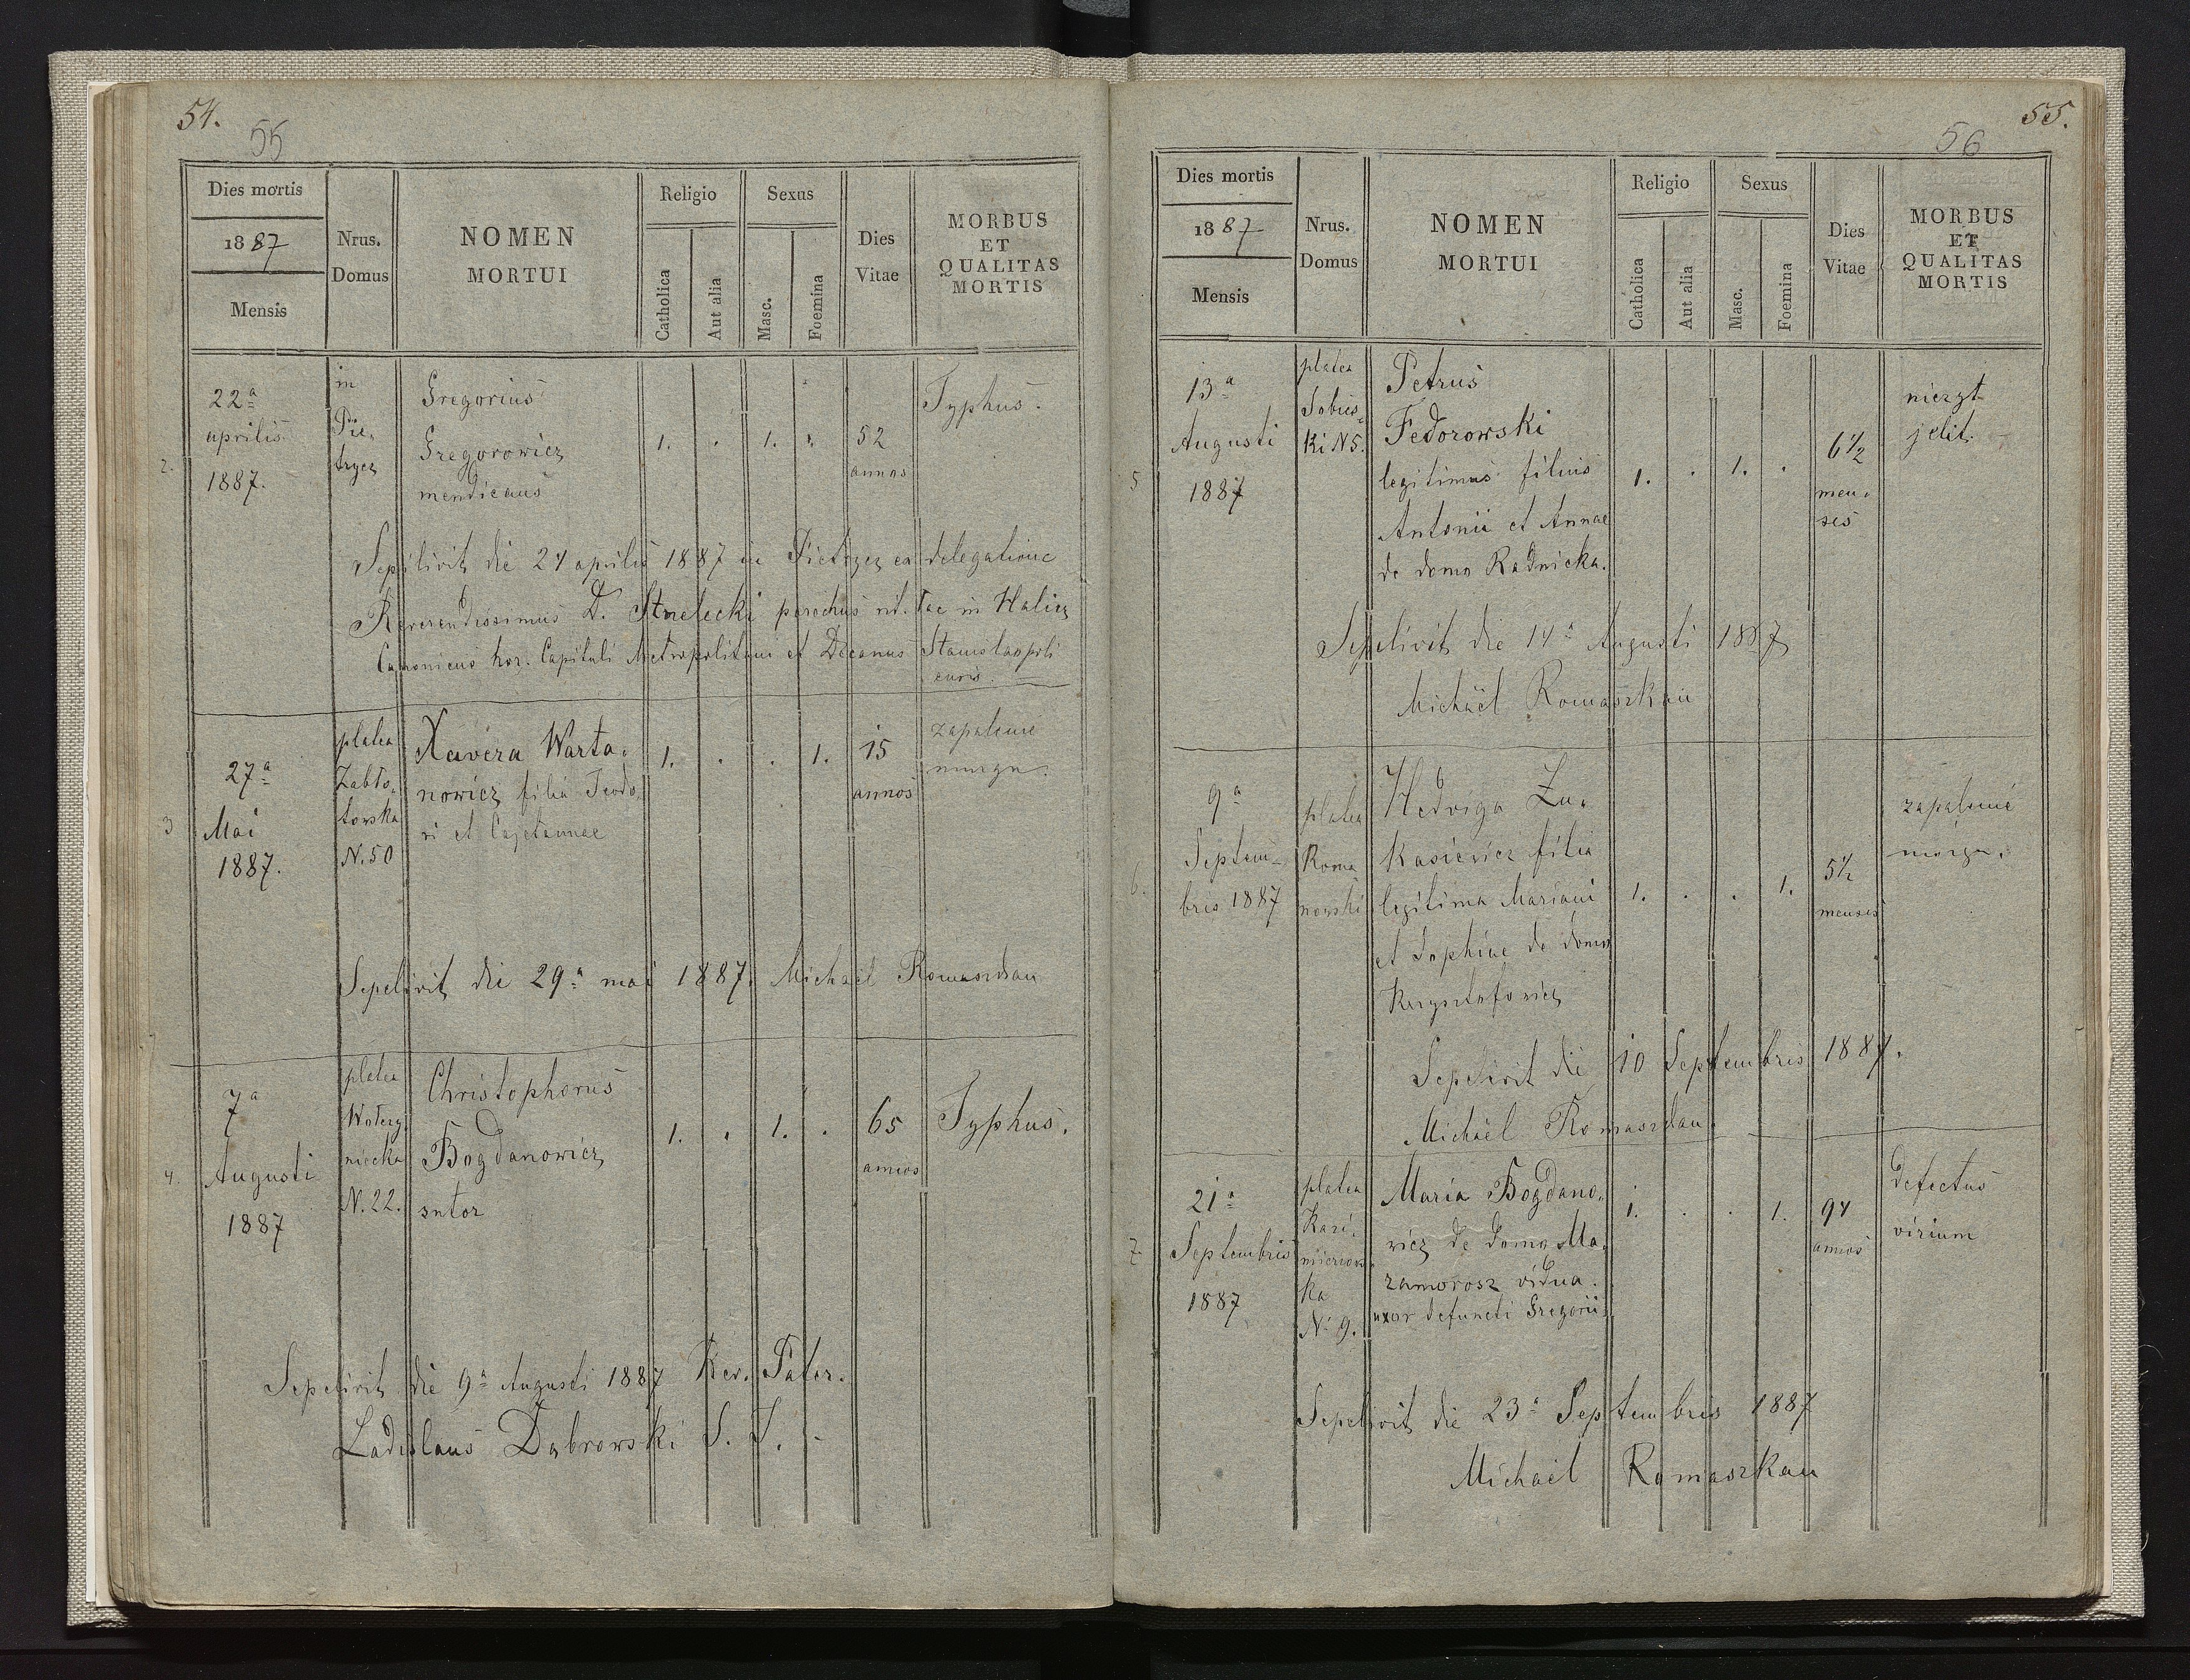 54.
55
Dies mortis
1887
Mensis
Nrus.
Domus
NOMEN
MORTUI
Religio
Catholica
Aut alia
Sexus
Masc.
Foemina
Dies
Vitae
MORBUS
ET
QUALITAS
MORTIS
2.
22ª
aprilis
1887.
in
Pie-
trycz
Gregorius
Gregorowicz
mendicans
1. . 1. .
52
annos
Typhus.
Sepelivit die 24 aprilis 1887 in Pietrycz ex delegatione
Reverendissimus D. Strzelecki parochus rit. lac in Halicz
Canonicus hor. Capituli Metropolitani et Decanus Stanislaopoli
ensis.
3
27ª
Mai
1887.
platea
Zabło-
towska
N. 50
Xavera Warta-
nowicz filia Teodo-
ri et Cajetannae
1. . . 1.
15
annos
zapalenie
mózgu.
Sepelivit die 29ª mai 1887. Michael Romaszkan
4.
7ª
Augusti
1887
platea
Wotezy
niecka
N. 22.
Christophorus
Bogdanowicz
sutor
1. . 1. .
65
annos
Typhus.
Sepelivit die 9ª Augusti 1887 Rev. Pater.
Ladislaus Dąbrowski S. J. -
55.
56
Dies mortis
1887
Mensis
Nrus.
Domus
NOMEN
MORTUI
Religio
Catholica
Aut alia
Sexus
Masc.
Foemina
Dies
Vitae
MORBUS
ET
QUALITAS
MORTIS
5
13ª
Augusti
1887
platea
Sobies-
ki N5.
Petrus
Fedorowski
legitimus filius
Antonii et Annae
de domo Radnicka.
1. . 1. .
6½
men-
ses
nieżyt
jelit.
Sepelivit die 14ª Augusti 1887
Michael Romaszkan
6.
9ª
Septem-
bris 1887
platea
Roma
nowski
Hedviga Łu-
kasiewicz filia
legitima Mariani
et Sophiae de domo
Krzysztofowicz
1. . . 1.
5½
menses
zapalenie
mózgu.
Sepelivit die 10 Septembris 1887.
Michael Romaszkan.
7
21ª
Septembris
1887
platea
Kazi-
mierows-
ka
Nº 9.
Maria Bogdano-
wicz de domo Ma-
zamorosz vidua.
uxor defuncti Gregorii.
1. . . 1.
94
annos
defectus
virium
Sepelivit die 23ª Septembris 1887
Michael Romaszkan